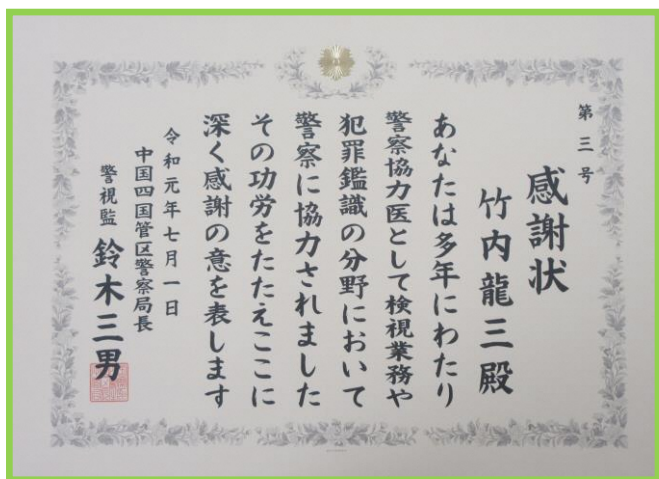 第三号
感謝状
竹内龍三殿
あなたは多年にわたり
警察協力医として検視業務や
犯罪鑑識の分野において
警察に協力されました
その功労をたたえここに
深く感謝の意を表します
令和元年七月一日
中国四国管区警察局長
警視監 鈴木三男